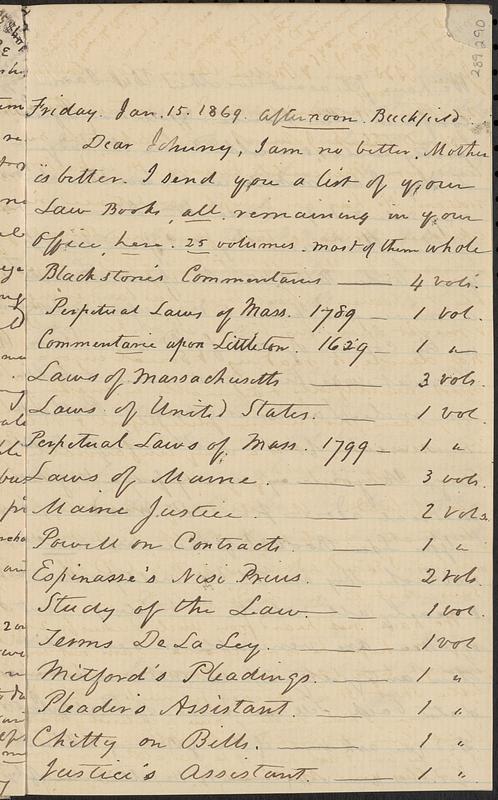 289 290
Friday. Jan. 15. 1869. afternoon. Buckfield.
Dear Johnny, I am no better. Mother
is better. I send you a list of your
Law Books, all, remaining in your
Office, here. 25 volumes. most of them whole
Blackstone's Commentaries —— 4 vols.
Perpetual Laws of Mass. 1789 — 1 vol.
Commentarie upon Littleton. 1629 — 1 "
Laws of Massachusetts —— 3 vols.
Laws of United States. — 1 vol.
Perpetual Laws of Mass. 1799 — 1 "
Laws of Maine. —— 3 vols.
Maine Justice. —— 2 vols.
Powell on Contracts. — 1 "
Espinasse's Nisi Prius. — 2 vols.
Study of the Law. — 1 vol.
Terms De La Ley. —— 1 vol
Mitford's Pleadings. —— 1 "
Pleader's Assistant. —— 1 "
Chitty on Bills. —— 1 "
Justice's Assistant. —— 1 "